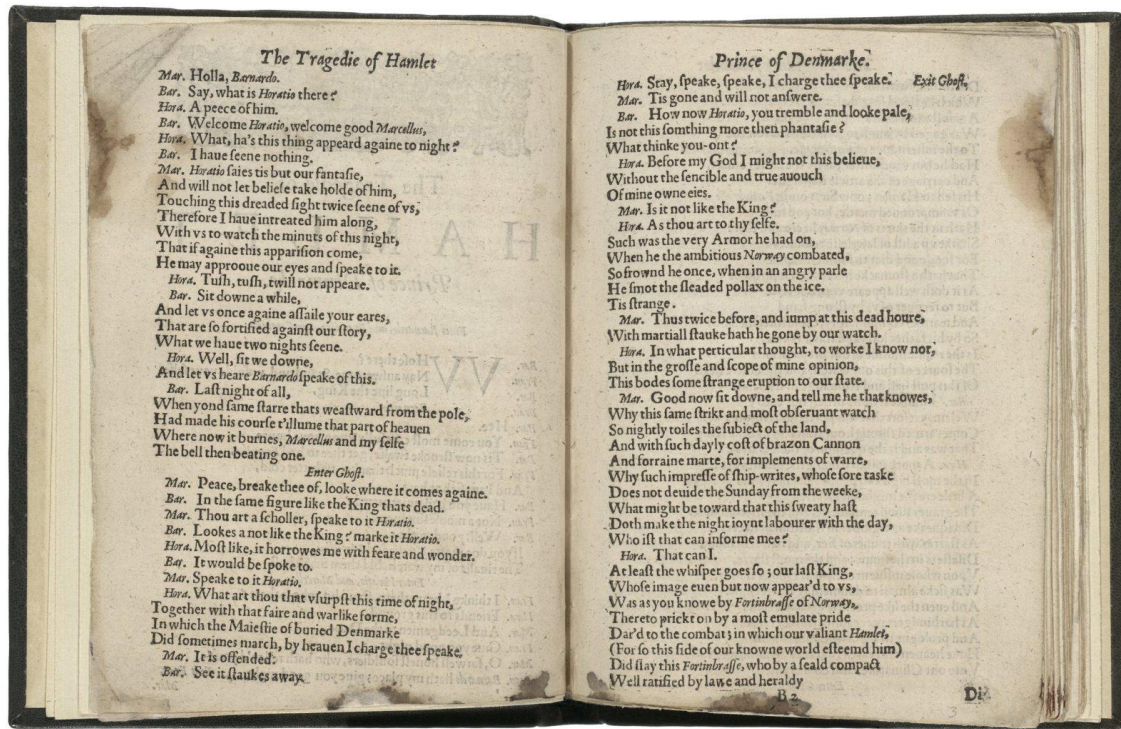 The Tragedie of Hamlet
Mar. Holla, Barnardo.
Bar. Say, what is Horatio there?
Hora. A peece of him.
Bar. Welcome Horatio, welcome good Marcellus,
Hora. What, ha's this thing appeard againe to night?
Bar. I haue seene nothing.
Mar. Horatio saies tis but our fantasie,
And will not let beliefe take holde of him,
Touching this dreaded sight twice seene of vs,
Therefore I haue intreated him along,
With vs to watch the minuts of this night,
That if againe this apparision come,
He may approoue our eyes and speake to it.
Hora. Tush, tush, twill not appeare.
Bar. Sit downe a while,
And let vs once againe assaile your eares,
That are so fortified against our story,
What we haue two nights seene.
Hora. Well, sit we downe,
And let vs heare Barnardo speake of this.
Bar. Last night of all,
When yond same starre thats weastward from the pole,
Had made his course t'illume that part of heauen
Where now it burnes, Marcellus and my selfe
The bell then beating one.
Enter Ghost.
Mar. Peace, breake thee of, looke where it comes againe.
Bar. In the same figure like the King thats dead.
Mar. Thou art a scholler, speake to it Horatio.
Bar. Lookes a not like the King? marke it Horatio.
Hora. Most like, it horrowes me with feare and wonder.
Bar. It would be spoke to.
Mar. Speake to it Horatio.
Hora. What art thou that vsurpst this time of night,
Together with that faire and warlike forme,
In which the Maiestie of buried Denmarke
Did sometimes march, by heauen I charge thee speake.
Mar. It is offended.
Bar. See it staukes away.
Prince of Denmarke.
Hora. Stay, speake, speake, I charge thee speake. Exit Ghost.
Mar. Tis gone and will not answere.
Bar. How now Horatio, you tremble and looke pale,
Is not this somthing more then phantasie?
What thinke you-ont?
Hora. Before my God I might not this belieue,
Without the sencible and true auouch
Of mine owne eies.
Mar. Is it not like the King?
Hora. As thou art to thy selfe.
Such was the very Armor he had on,
When he the ambitious Norway combated,
So frownd he once, when in an angry parle
He smot the sleaded pollax on the ice.
Tis strange.
Mar. Thus twice before, and iump at this dead houre,
With martiall stauke hath he gone by our watch.
Hora. In what perticular thought, to worke I know not,
But in the grosse and scope of mine opinion,
This bodes some strange eruption to our state.
Mar. Good now sit downe, and tell me he that knowes,
Why this same strikt and most obseruant watch
So nightly toiles the subiect of the land,
And with such dayly cost of brazon Cannon
And forraine marte, for implements of warre,
Why such impresse of ship-writes, whose sore taske
Does not deuide the Sunday from the weeke,
What might be toward that this sweaty hast
Doth make the night ioynt labourer with the day,
Who ist that can informe mee?
Hora. That can I.
At least the whisper goes so; our last King,
Whose image euen but now appear'd to vs,
Was as you knowe by Fortinbrasse of Norway,
Thereto prickt on by a most emulate pride
Dar'd to the combat; in which our valiant Hamlet,
(For so this side of our knowne world esteemd him)
Did slay this Fortinbrasse, who by a seald compact
Well ratified by lawe and heraldy
B 2
Did
3